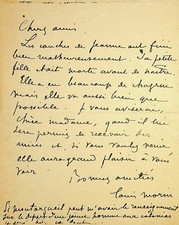 Chers amis
Les couches de Jeanne ont fini
bien malheureusement. Sa petite
fille était morte avant de naître.
Elle a eu beaucoup de chagrin
mais elle va aussi bien que
possible. Je vous aviserai,
chère madame, quand il lui
sera permis de recevoir des
amis et si vous voulez venir
elle aura grand plaisir à vous
voir.
Bonnes amitiés
Louis Morin